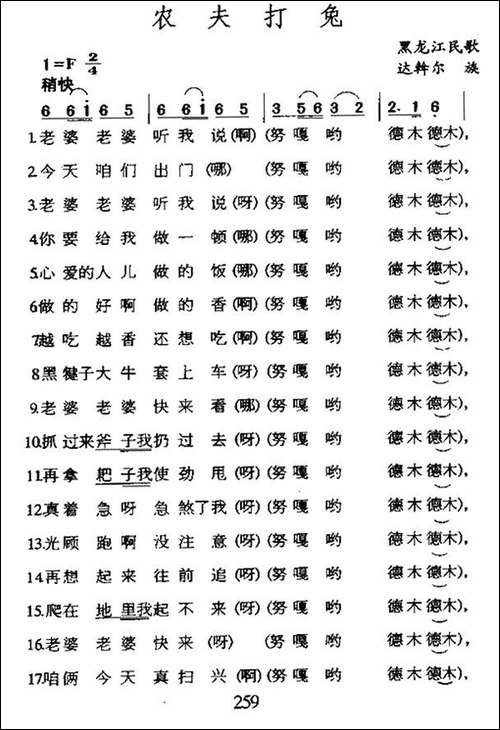 农夫打兔
黑龙江民歌
1=F 2/4
达斡尔 族
稍快
6 6 i 6 5 | 6 6 i 6 5 | 3 5 6 3 2 | 2. 1 6
1.老婆 老婆 听我 说(啊)(努 嘎 哟 德木德木),
2.今天 咱们 出门 (哪) (努 嘎 哟 德木德木),
3.老婆 老婆 听我 说(呀)(努 嘎 哟 德木德木),
4.你要 给我 做一 顿(哪)(努 嘎 哟 德木德木),
5.心爱的人儿 做的 饭(哪)(努 嘎 哟 德木德木),
6做的 好啊 做的 香(啊)(努 嘎 哟 德木德木),
7越吃 越香 还想 吃(啊)(努 嘎 哟 德木德木),
8黑犍子大牛 套上 车(呀)(努 嘎 哟 德木德木),
9.老婆 老婆 快来 看(哪)(努 嘎 哟 德木德木),
10.抓过来斧子我扔过 去(呀)(努 嘎 哟 德木德木),
11.再拿 耙子我使劲 甩(呀)(努 嘎 哟 德木德木),
12.真着 急呀 急煞了我(呀)(努 嘎 哟 德木德木),
13.光顾 跑啊 没注 意(呀)(努 嘎 哟 德木德木),
14.再想 起来 往前 追(呀)(努 嘎 哟 德木德木),
15.爬在 地里我起不 来(呀)(努 嘎 哟 德木德木),
16.老婆 老婆 快来 (呀) (努 嘎 哟 德木德木),
17.咱俩 今天 真扫 兴(啊)(努 嘎 哟 德木德木),
259